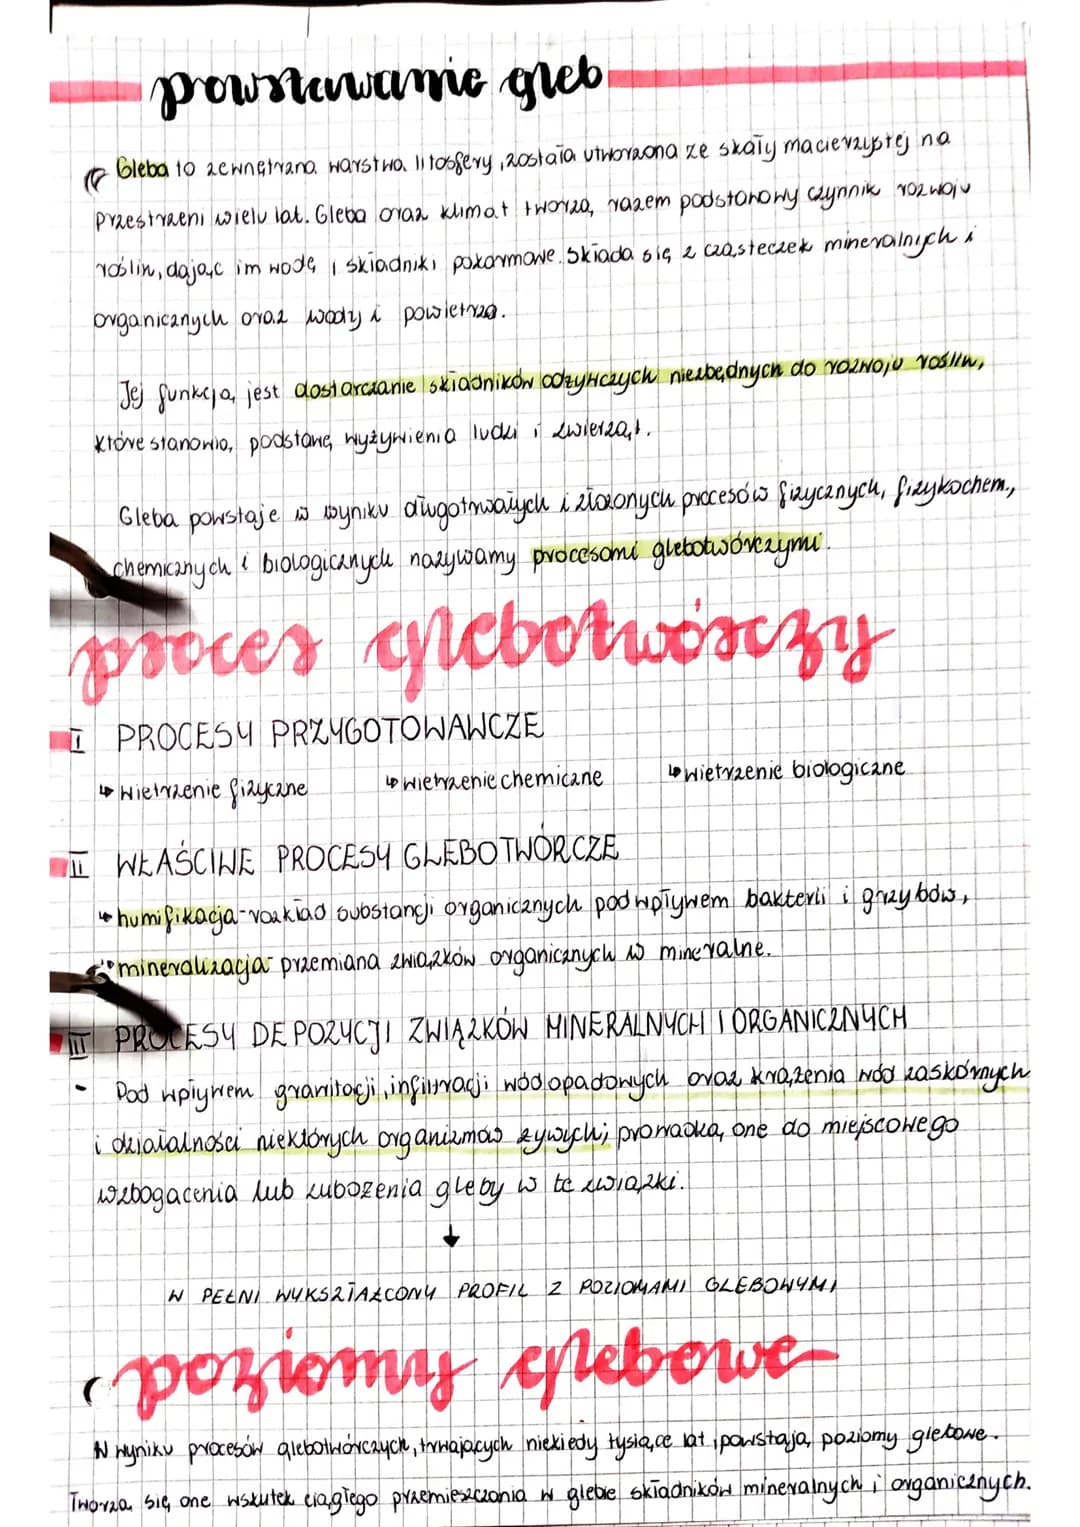 powstawanie gleb
Gleba to zewnętrzna warstwa litosfery, została utworzona ze skały macierzystej na
przestrzeni wielu lat. Gleba oraz klimat tworzą razem podstawowy czynnik rozwoju
roślin, dając im wodę i składniki pokarmowe. Składa się z cząsteczek mineralnych i
organicznych oraz wody i powietrza.
Jej funkcją jest dostarczanie składników odżywczych niezbędnych do rozwoju roślin,
które stanowią podstawę wyżywienia ludzi i zwierząt.
Gleba powstaje w wyniku długotrwałych i złożonych procesów fizycznych, fizykochem.,
chemicznych i biologicznych nazywamy procesami glebotwórczymi.
proces glebotwórczy
I PROCESY PRZYGOTOWAWCZE
↳ wietrzenie fizyczne ↳ wietrzenie chemiczne ↳ wietrzenie biologiczne
II WŁAŚCIWE PROCESY GLEBOTWÓRCZE
↳ humifikacja - rozkład substancji organicznych pod wpływem bakterii i grzybów,
mineralizacja - przemiana związków organicznych w mineralne.
III PROCESY DEPOZYCJI ZWIĄZKÓW MINERALNYCH I ORGANICZNYCH
- Pod wpływem granitacji, infiltracji wód opadowych oraz krążenia wód zaskórnych
i działalności niektórych organizmów żywych; prowadzą one do miejscowego
wzbogacenia lub zubożenia gleby w te związki.
↓
W PEŁNI WYKSZTAŁCONY PROFIL Z POZIOMAMI GLEBOWYMI
poziomy glebowe
W wyniku procesów glebotwórczych, trwających niekiedy tysiące lat, powstają poziomy glebowe.
Tworzą się one wskutek ciągłego przemieszczania w glebie składników mineralnych i organicznych.